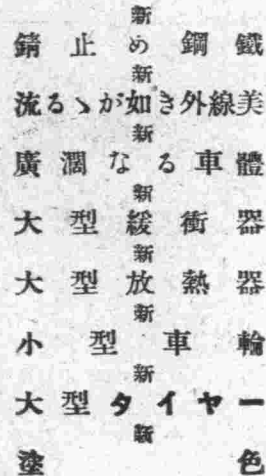 新
錆止め鋼鐵
新
流るゝが如き外線美
新
廣濶なる車體
新
大型緩衝器
新
大型放熱器
新
小型車輪
新
大型タイヤー
新
塗色